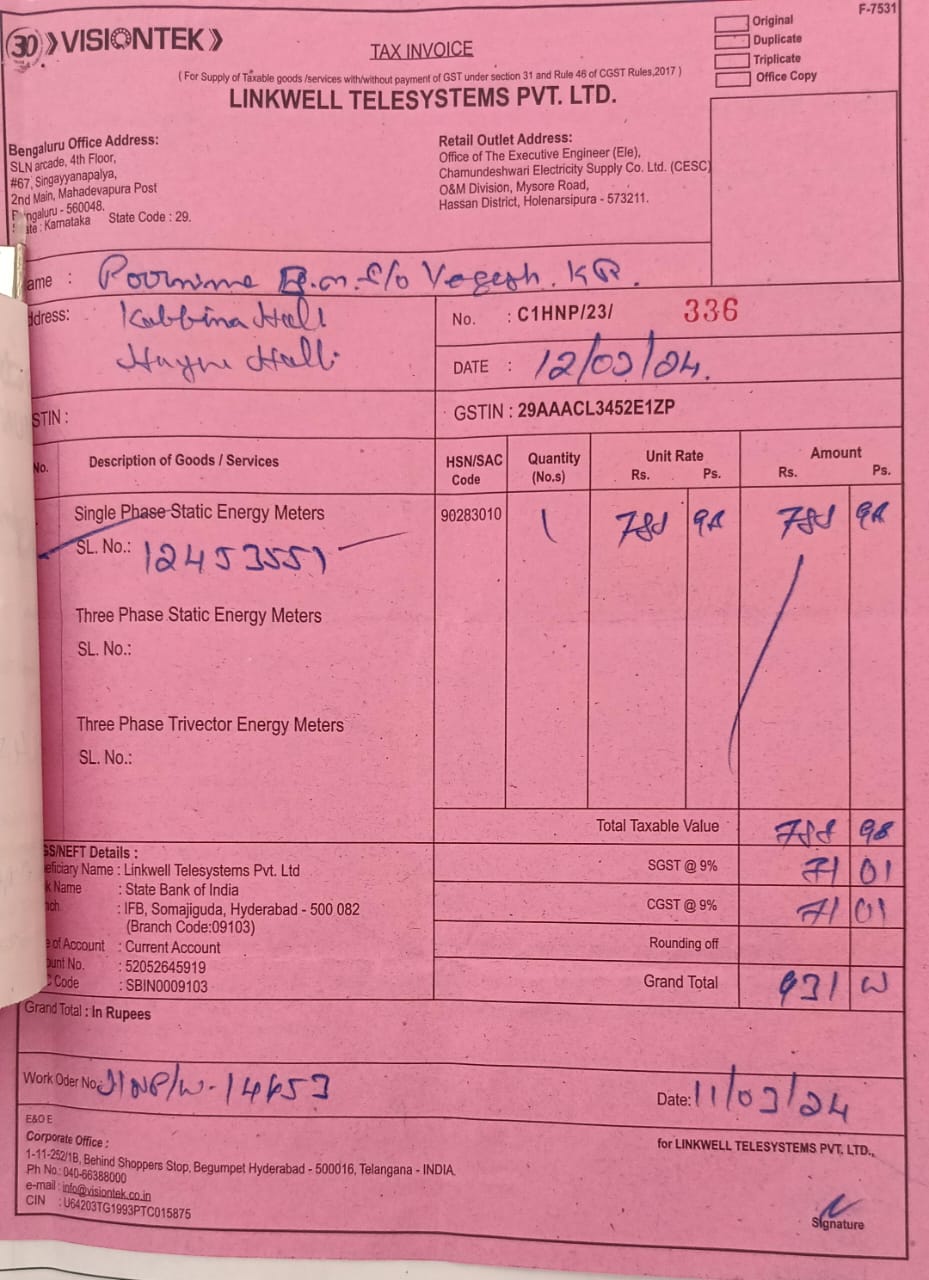 F-7531
30 VISIONTEK
TAX INVOICE
Original
Duplicate
Triplicate
Office Copy
( For Supply of Taxable goods /services with/without payment of GST under section 31 and Rule 46 of CGST Rules,2017 )
LINKWELL TELESYSTEMS PVT. LTD.
Bengaluru Office Address:
SLN arcade, 4th Floor,
#67, Singayyanapalya,
2nd Main, Mahadevapura Post
ngaluru - 560048.
: Karnataka State Code : 29.
Retail Outlet Address:
Office of The Executive Engineer (Ele),
Chamundeshwari Electricity Supply Co. Ltd. (CESC)
O&M Division, Mysore Road,
Hassan District, Holenarsipura - 573211.
ame : Poornima
dress: Kabbina Halli
Halli
No. : C1HNP/23/ 336
DATE : 12/03/24.
STIN :
GSTIN : 29AAACL3452E1ZP
No. Description of Goods / Services HSN/SAC Code Quantity (No.s) Unit Rate Rs. Ps. Amount Rs. Ps.
Single Phase Static Energy Meters 90283010 1 788 98 788 98
SL. No.: 12453551
Three Phase Static Energy Meters
SL. No.:
Three Phase Trivector Energy Meters
SL. No.:
Total Taxable Value 788 98
SGST @ 9% 71 01
CGST @ 9% 71 01
Rounding off
Grand Total 931 00
GS/NEFT Details :
eficiary Name : Linkwell Telesystems Pvt. Ltd
k Name : State Bank of India
nch : IFB, Somajiguda, Hyderabad - 500 082
(Branch Code:09103)
e of Account : Current Account
ount No. : 52052645919
Code : SBIN0009103
Grand Total : In Rupees
Work Oder No.: HNP/W-14653
Date: 11/03/24
E&O E
Corporate Office :
1-11-252/1B, Behind Shoppers Stop, Begumpet Hyderabad - 500016, Telangana - INDIA.
Ph No.: 040-66388000
e-mail : info@visiontek.co.in
CIN : U64203TG1993PTC015875
for LINKWELL TELESYSTEMS PVT. LTD.,
Signature